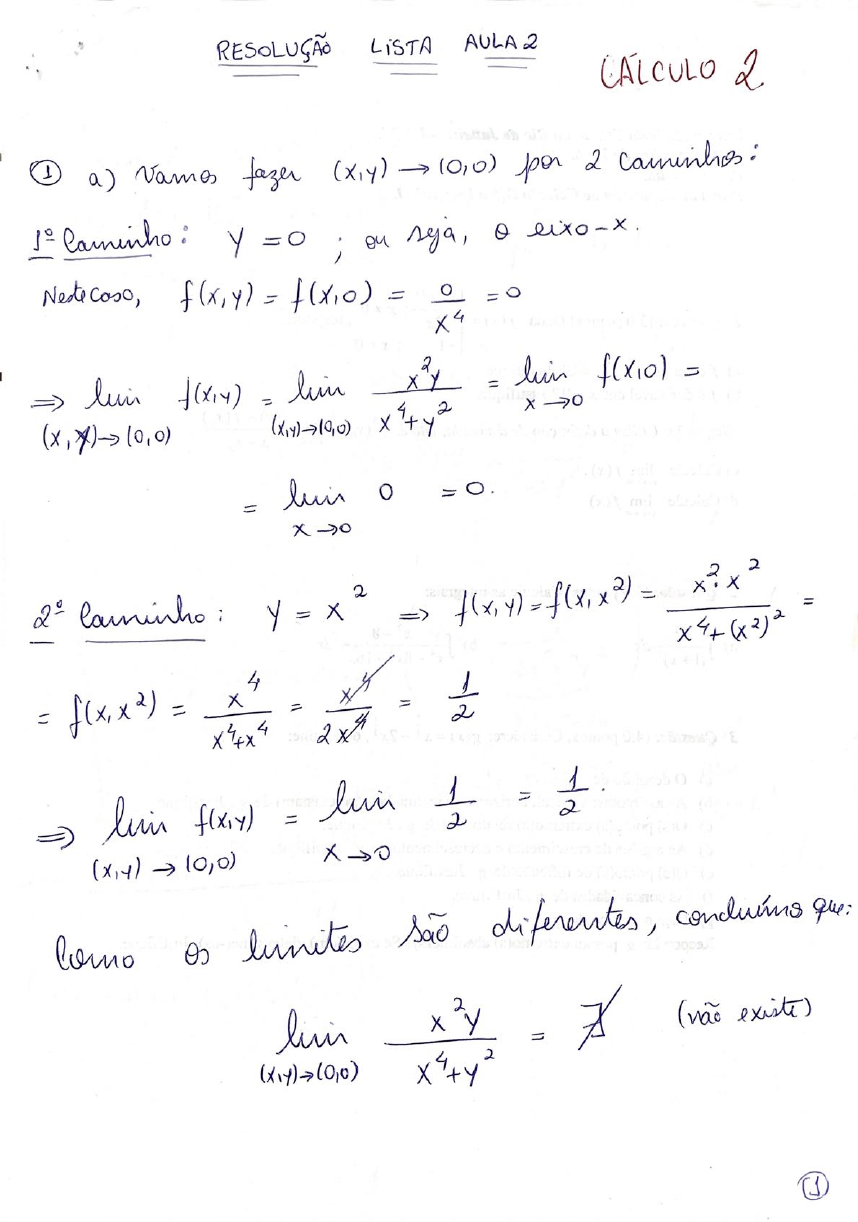 RESOLUÇÃO LISTA AULA 2
CÁLCULO 2
① a) Vamos fazer (x,y) → (0,0) por 2 caminhos:
1º Caminho: y = 0 ; ou seja, o eixo-x.
Neste caso, f(x,y) = f(x,0) = 0/x⁴ = 0
⇒ lim (x,y)→(0,0) f(x,y) = lim (x,y)→(0,0) x²y/(x⁴+y²) = lim x→0 f(x,0) =
= lim x→0 0 = 0.
2º Caminho: y = x² ⇒ f(x,y) = f(x,x²) = x².x²/(x⁴+(x²)²) =
= f(x,x²) = x⁴/(x⁴+x⁴) = x⁴/2x⁴ = 1/2
⇒ lim (x,y)→(0,0) f(x,y) = lim x→0 1/2 = 1/2.
Como os limites são diferentes, concluímos que:
lim (x,y)→(0,0) x²y/(x⁴+y²) = ∄ (não existe)
①